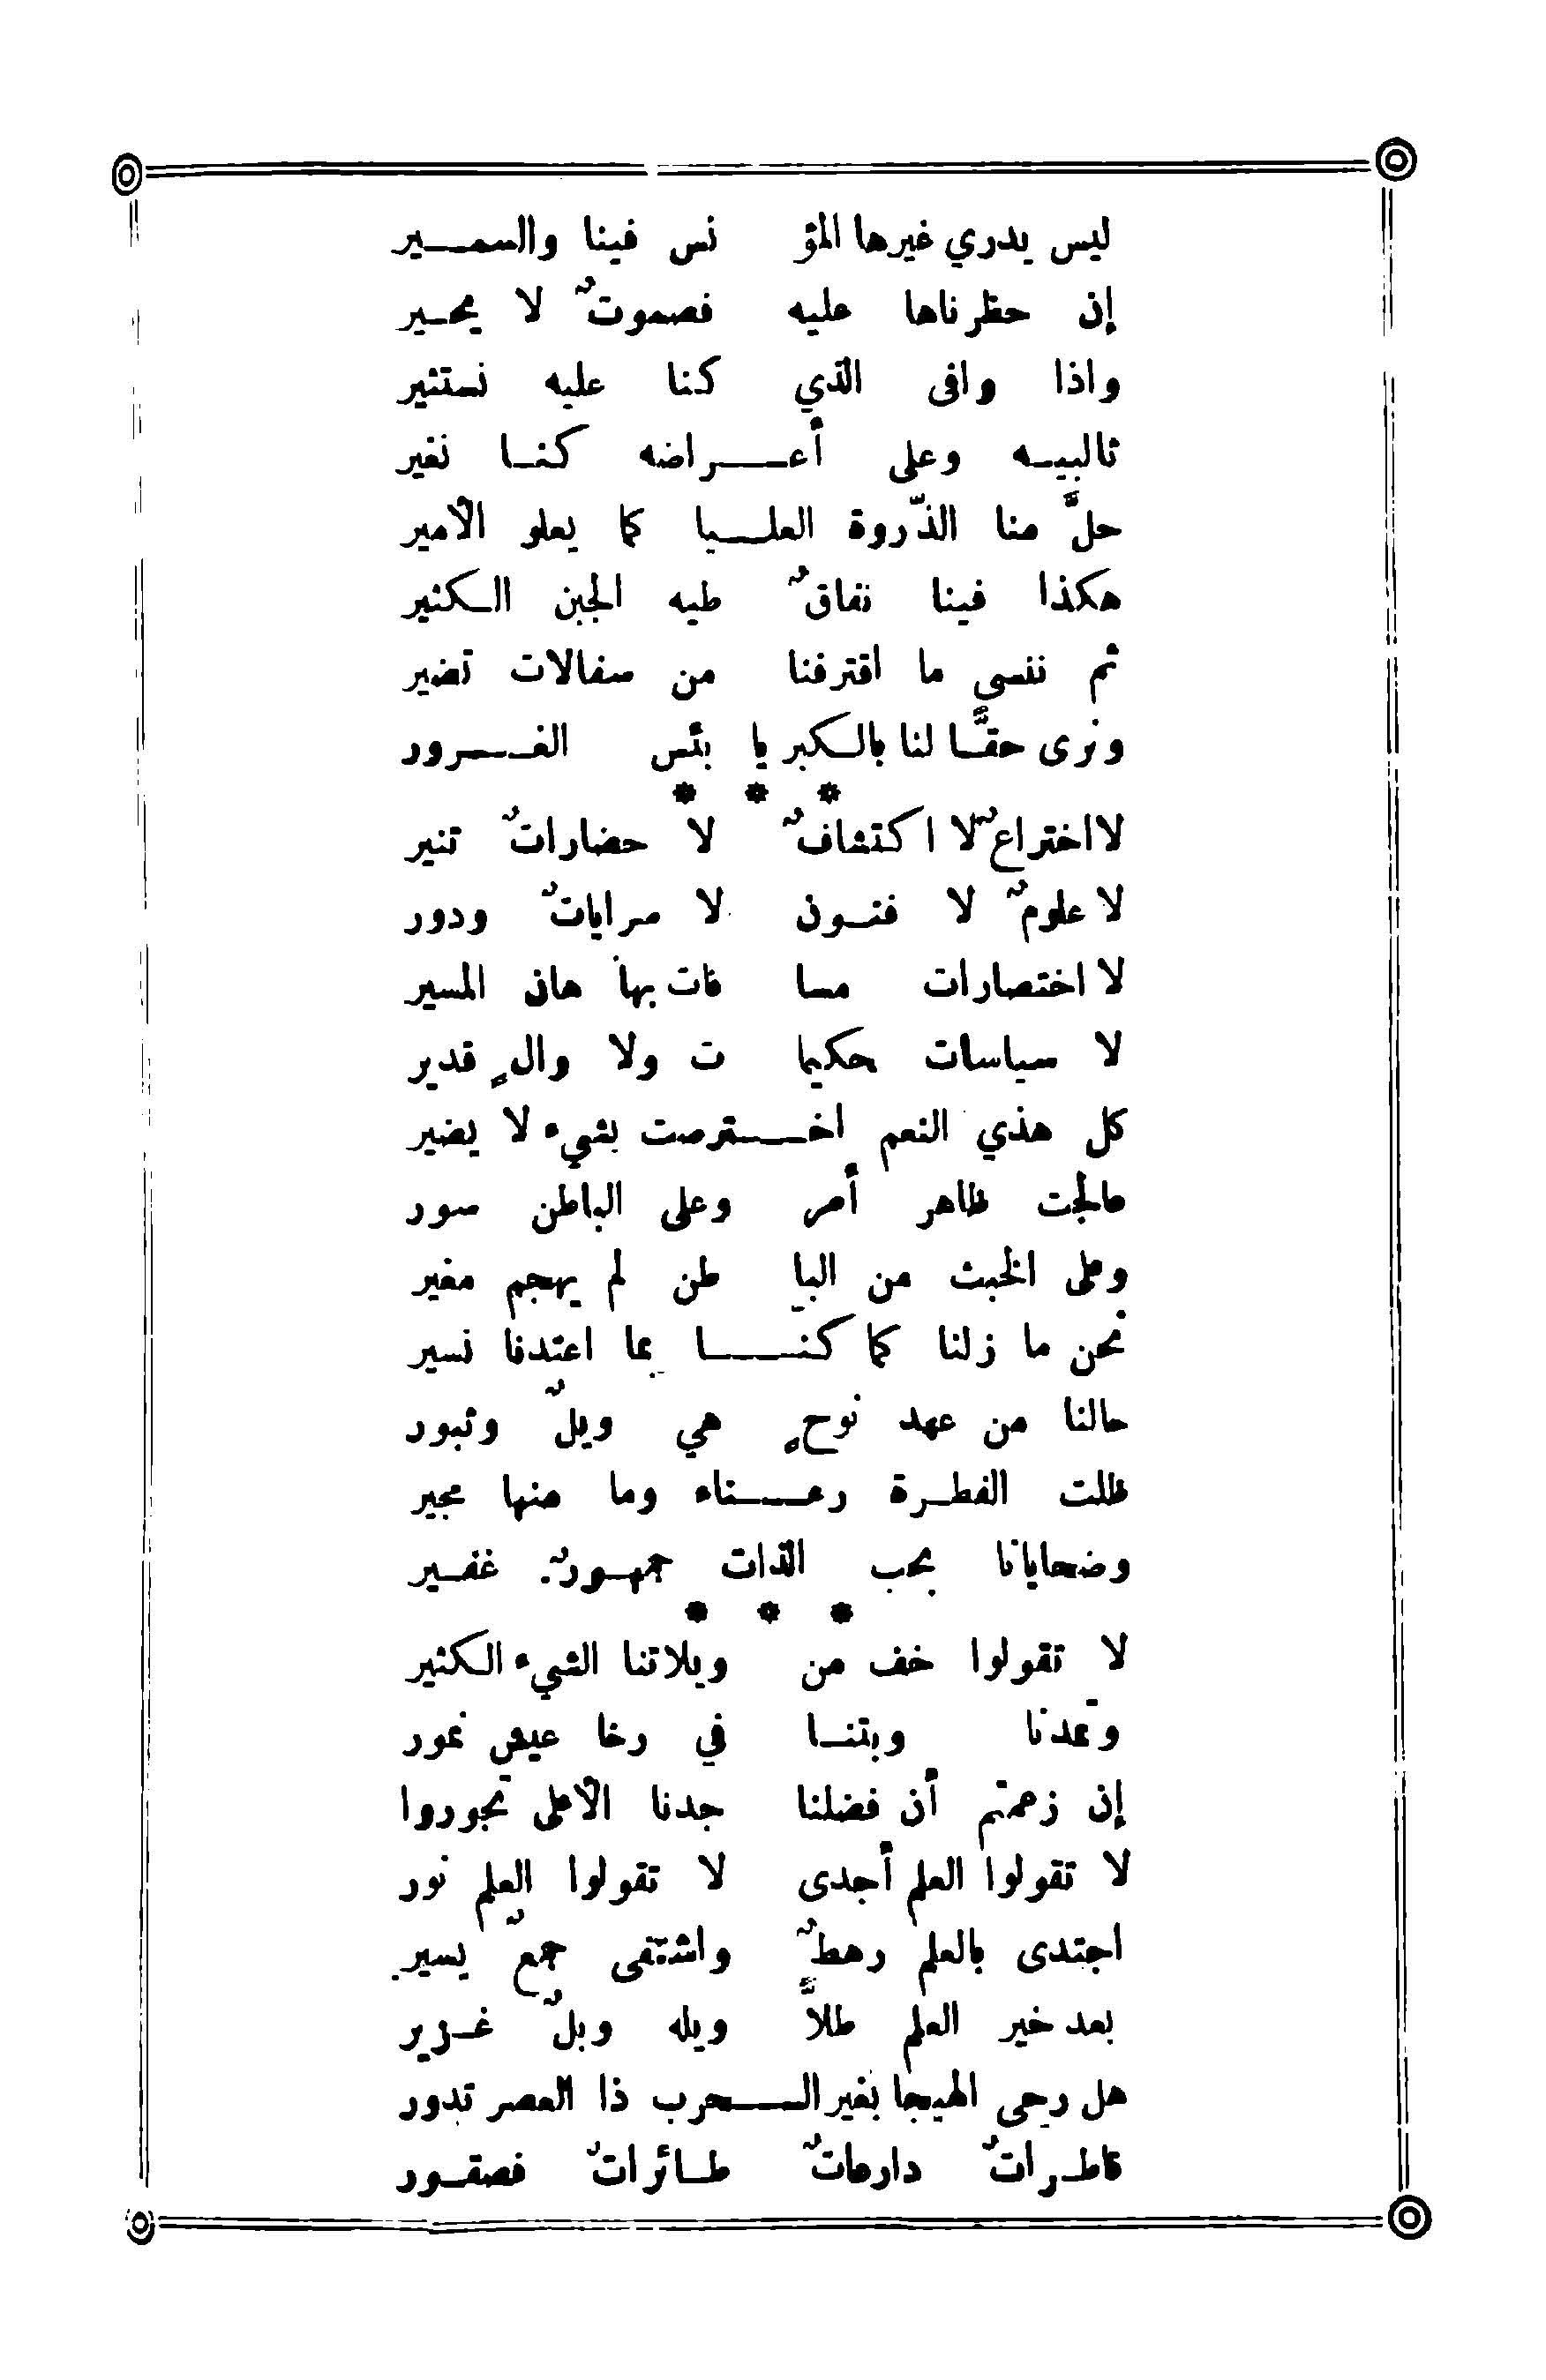 ليس يدري غيرها المؤ نس فينا والسمير
إن حظرناها عليه فصموتٌ لا يحير
واذا وافى الذي كنا عليه نستثير
ثالبيه وعلى أعراضه كنا نغير
حلَّ منا الذّروة العليا كما يعلو الأمير
هكذا فينا نفاقٌ طيه الجبن الكثير
ثم ننسى ما اقترفنا من سفالات تضير
ونرى حقًّا لنا بالكبريا بئس الغرور
* * *
لا اختراعٌ لا اكتشافٌ لا حضاراتٌ تنير
لا علومٌ لا فنون لا سراياتٌ ودور
لا اختصارات مسا فات بها هان المسير
لا سياسات حكيما ت ولا والٍ قدير
كل هذي النعم اخترصت بشيء لا يضير
عالجت ظاهر أمر وعلى الباطن سور
وعلى الخبث من البا طن لم يهجم مغير
نحن ما زلنا كما كنا بما اعتدنا نسير
حالنا من عهد نوحٍ هي ويلٌ وثبور
ظلت الفطرة رعناء وما منها مجير
وضحايانا بحب الذات جمهورٌ غفير
* * *
لا تقولوا خف من ويلاتنا الشيء الكثير
وتمدنا وبتنا في رخا عيش نمور
إن زعمتم أن فضلنا جدنا الأعلى تجوروا
لا تقولوا العلم أجدى لا تقولوا العلم نور
اجتدى بالعلم رهطٌ واشتفى جمعٌ يسير
بعد خير العلم طلاًّ ويله وبلٌ غزير
هل رحى الهيجا بغير الحرب ذا العصر تدور
قاطراتٌ دارعاتٌ طائراتٌ فصقور